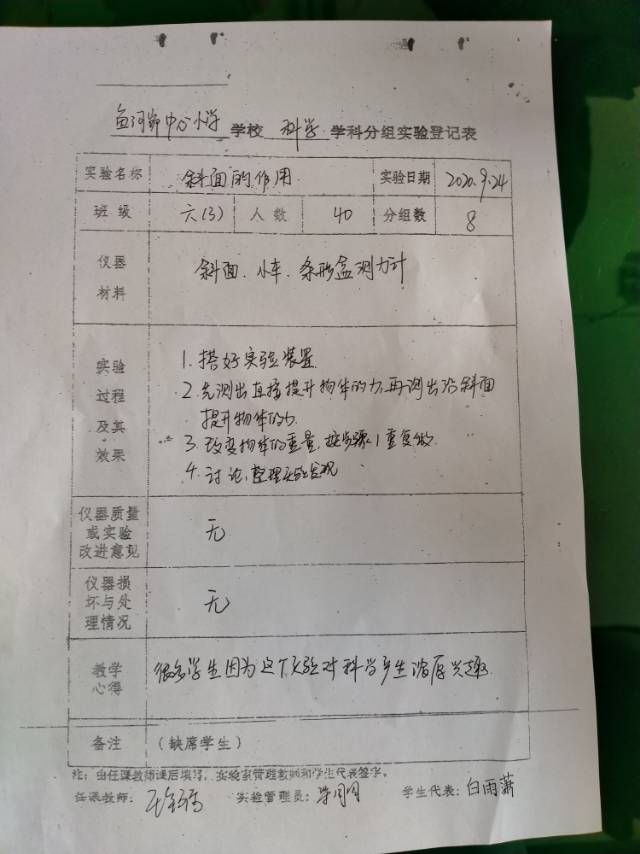 鱼河峁中心小学 学校 科学 学科分组实验登记表
实验名称 斜面的作用 实验日期 2020.9.24
班级 六(3) 人数 40 分组数 8
仪器
材料
斜面、小车、条形盒测力计
实验
过程
及其
效果
1. 搭好实验装置.
2. 先测出直接提升物体的力,再测出沿斜面
提升物体的力.
3. 改变物体的重量,按步骤1重复做.
4. 讨论,整理实验发现
仪器质量
或实验
改进意见
无
仪器损
坏与处
理情况
无
教学
心得
很多学生因为这个实验对科学产生浓厚兴趣.
备注 (缺席学生)
注:由任课教师课后填写,实验室管理教师和学生代表签字。
任课教师: 实验管理员: 学生代表:白雨潇